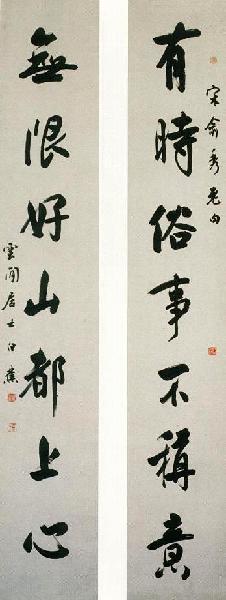 有時俗事不稱意
宋俞秀老句
無限好山都上心
雲間居士白蕉